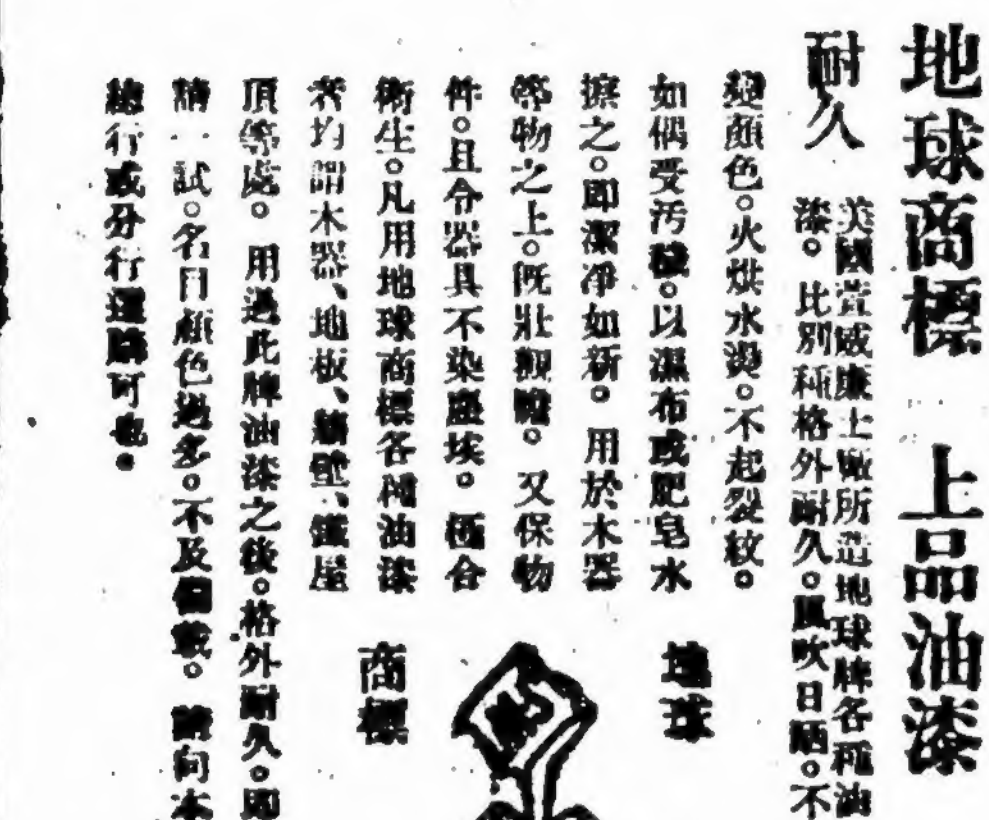 地球商標 上品油漆
耐久
美國萱威廉士廠所造地球牌各種油
漆。比別種格外耐久。風吹日晒。不
變顏色。火烘水燙。不起裂紋。
如偶受汚穢。以濕布或肥皂水
擦之。即潔凈如新。用於木器
等物之上。旣壯觀瞻。又保物
件。且令器具不染塵埃。極合
衛生。凡用地球商標各種油漆
者均謂木器、地板、牆壁、鐵屋
頂等處。用過此牌油漆之後。格外耐久。即
請一試。名目顏色過多。不及備載。請向本
總行或分行選購可也。
地球
商標